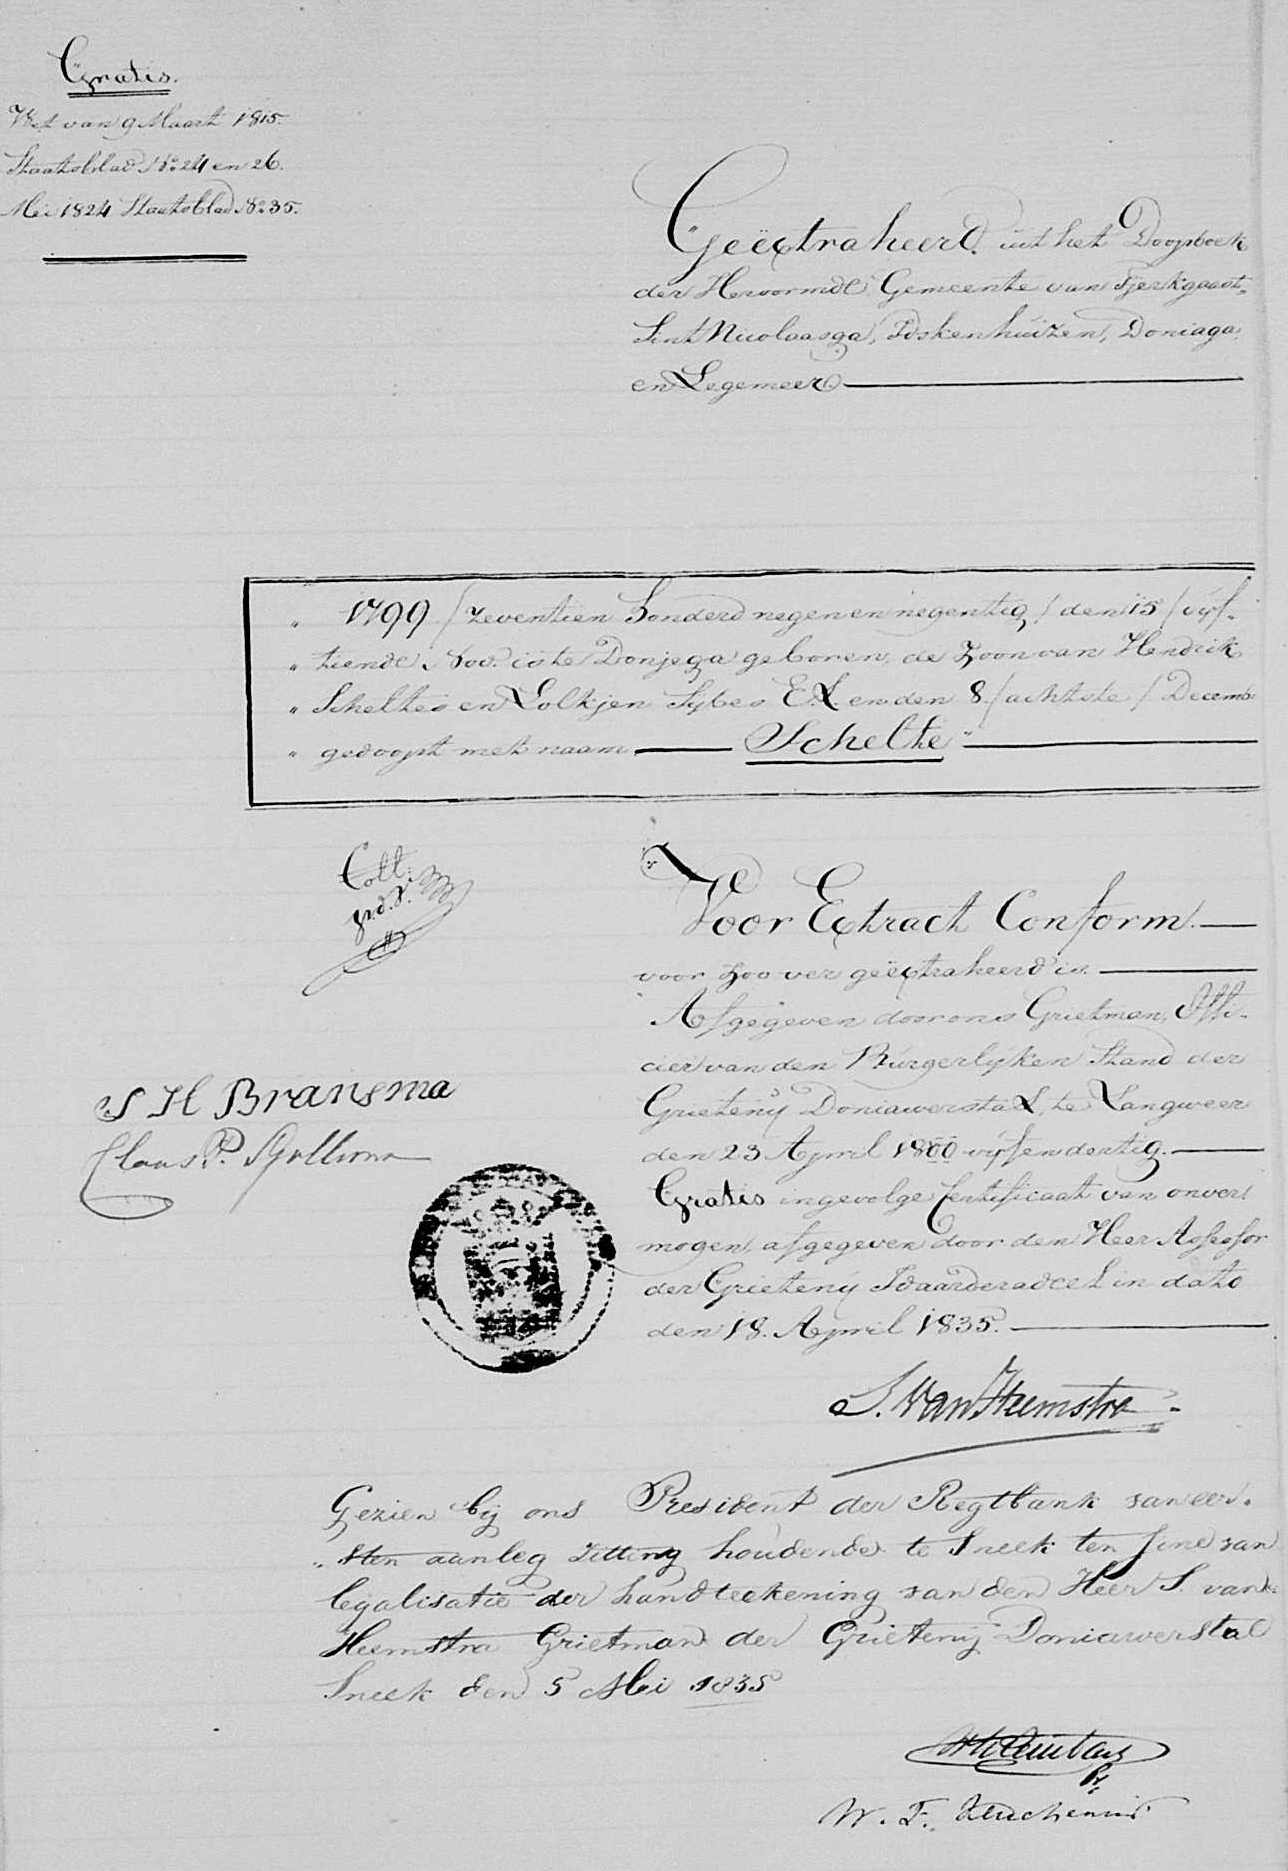 Gratis.
Wet van 9 Maart 1815.
Staatsblad No. 24 en 26.
Mei 1824 Staatsblad No. 35.
Geëxtraheerd uit het Doopboek
der Hervormde Gemeente van Tjerkgaast,
Sint Nicolaasga, Idskenhuizen, Doniaga,
en Legemeer
" 1799 / zeventien honderd negen en negentig / den 15 / vijf-
" tiende Nov. is te Donjega geboren, de zoon van Hendrik
" Scheltes en Lolkjen Sybes E.L. en den 8 / achtste / Decemb.
" gedoopt met naam Schelte "
Coll:
grd. S.
Voor Extract Conform.
voor zoo ver geëxtraheerd is.
Afgegeven door ons Grietman, Offi-
cier van den Burgerlijken Stand der
Grietenij Doniawerstal, te Langweer
den 23 April 1800 vijf en dertig.
Gratis ingevolge Certificaat van onver
mogen, afgegeven door den Heer Assessor
der Grietenij Idaarderadeel in dato
den 18. April 1835.
S H Bransma
Claas P.
S. van Heemstra
Gezien bij ons President der Regtbank van eer-
sten aanleg zitting houdende te Sneek ten fine van
legalisatie der handteekening van den Heer S. van
Heemstra Grietman der Grietenij Doniawerstal
Sneek den 5 Mei 1835
W. F.